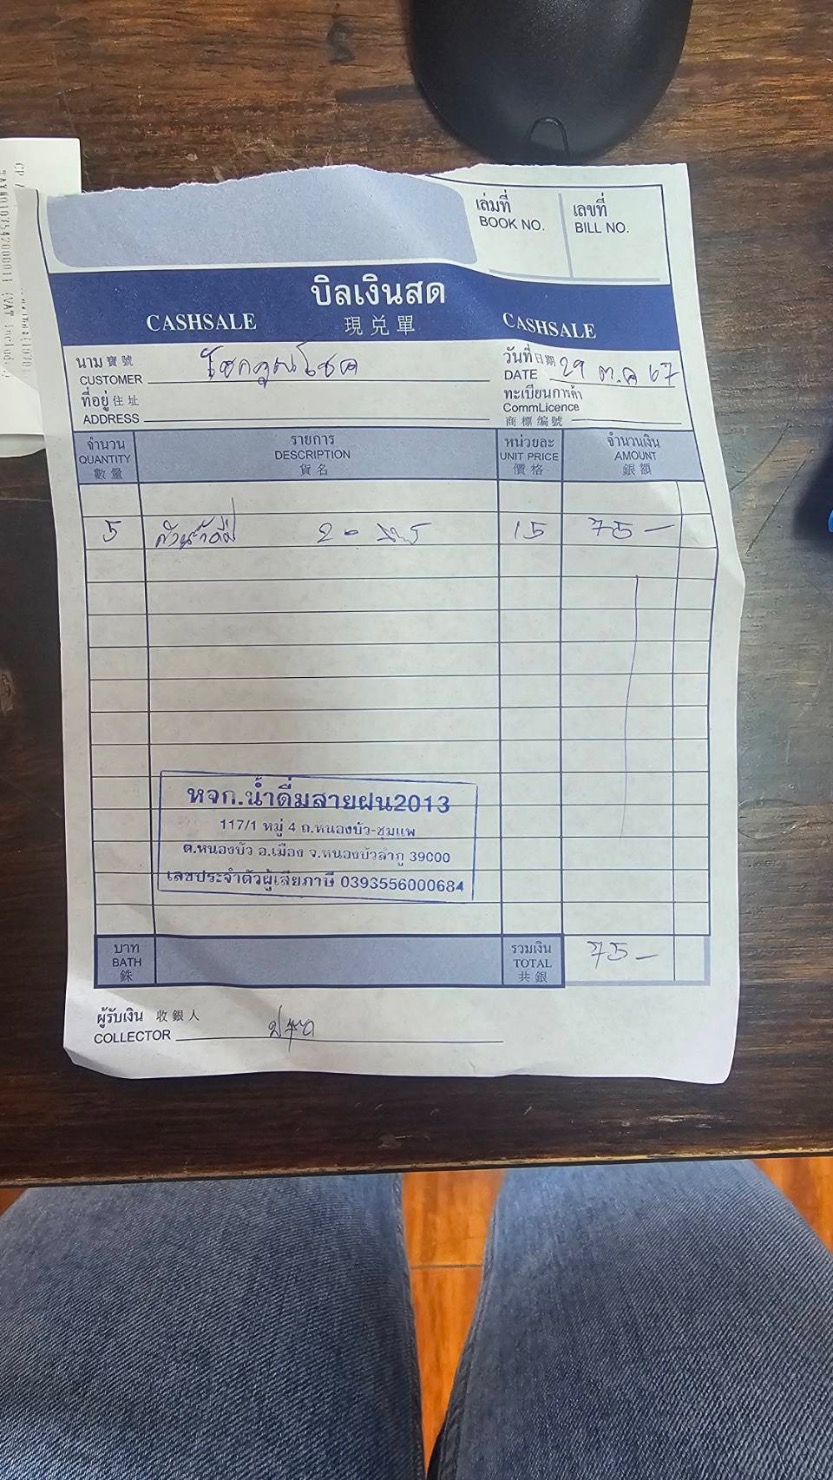 เล่มที่
BOOK NO.
เลขที่
BILL NO.
บิลเงินสด
CASHSALE 現兌單 CASHSALE
นาม 寶號
CUSTOMER โชคคูณโชค
วันที่ 日期
DATE 29 ต.ค 67
ที่อยู่ 住址
ADDRESS
ทะเบียนการค้า
CommLicence
商標編號
จำนวน
QUANTITY
數量
รายการ
DESCRIPTION
貨名
หน่วยละ
UNIT PRICE
價格
จำนวนเงิน
AMOUNT
銀額
5 15 75-
หจก.น้ำดื่มสายฝน2013
117/1 หมู่ 4 ถ.หนองบัว-ชุมแพ
ต.หนองบัว อ.เมือง จ.หนองบัวลำภู 39000
เลขประจำตัวผู้เสียภาษี 0393556000684
บาท
BATH
銖
รวมเงิน
TOTAL
共銀
75-
ผู้รับเงิน 收銀人
COLLECTOR